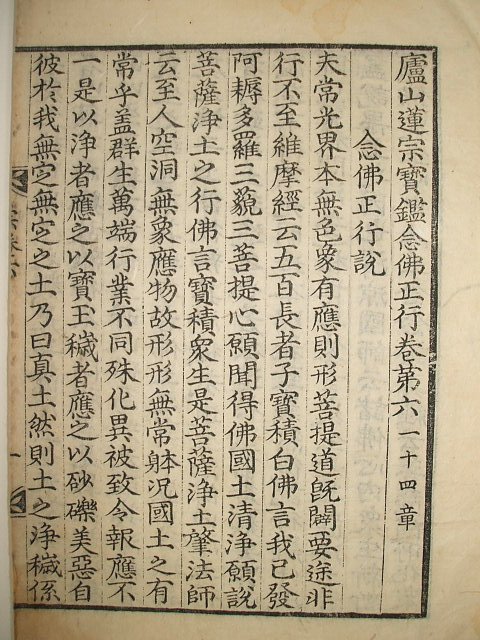 廬山蓮宗寶鑑念佛正行卷第六一十四章
念佛正行說
夫常光界本無色象有應則形菩提道旣闢要途非
行不至維摩經云五百長者子寶積白佛言我已發
阿耨多羅三藐三菩提心願聞得佛國土清淨願說
菩薩淨土之行佛言寶積衆生是菩薩淨土肇法師
云至人空洞無象應物故形形無常躰况國土之有
常乎盖群生萬端行業不同殊化異被致令報應不
一是以淨者應之以寶玉穢者應之以砂礫美惡自
彼於我無㝎無㝎之土乃曰真土然則土之淨穢係